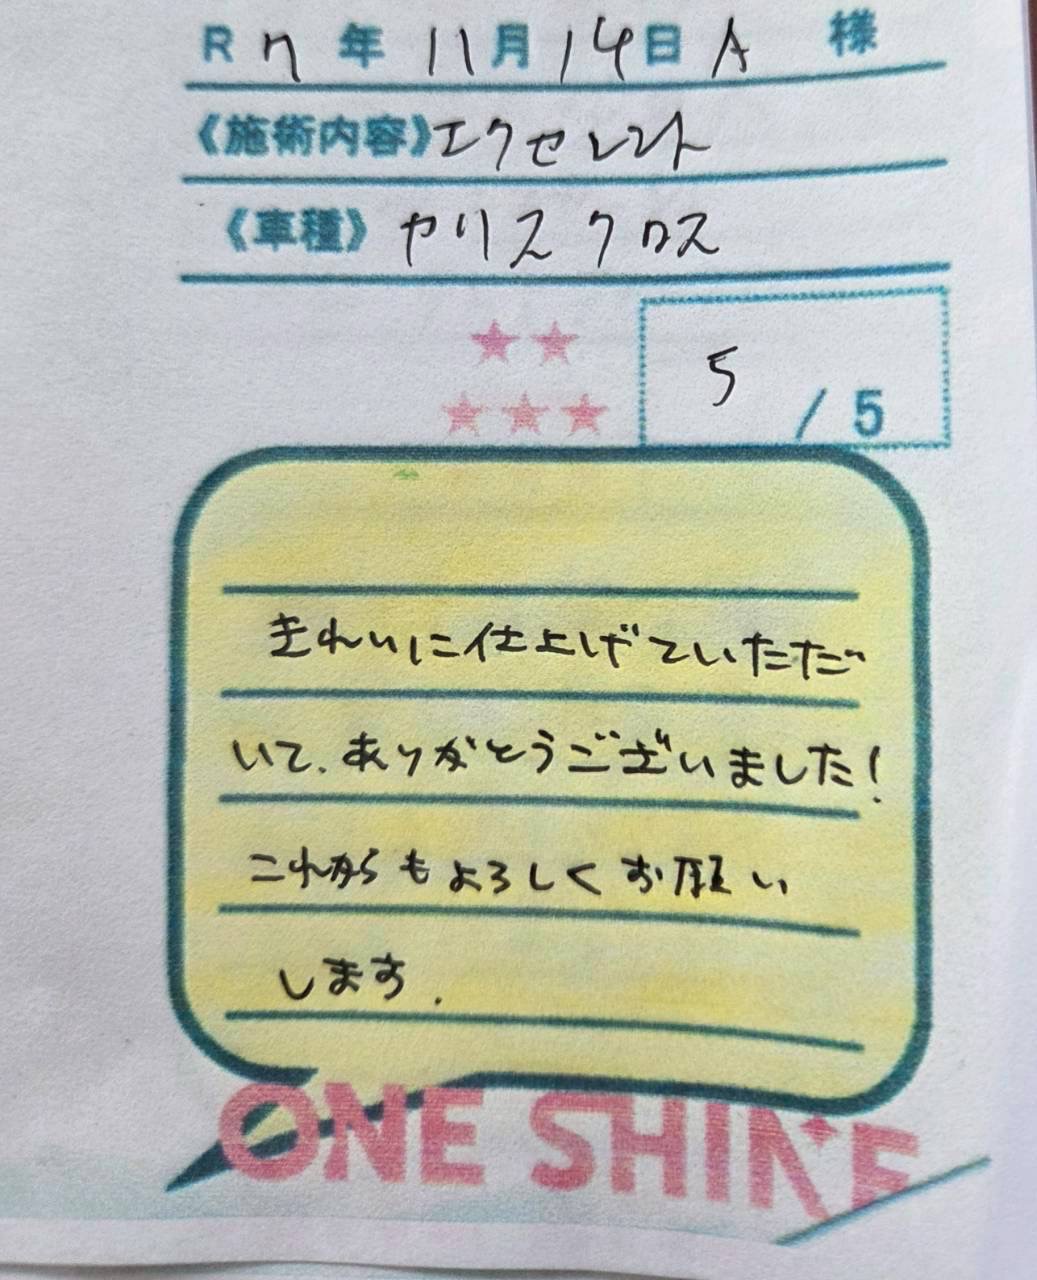 R 7 年 11 月 14 日 A 様
《施術内容》エクセレント
《車種》ヤリスクロス
5 / 5
きれいに仕上げていただ
いて、ありがとうございました!
これからもよろしくお願い
します.
ONE SHINE